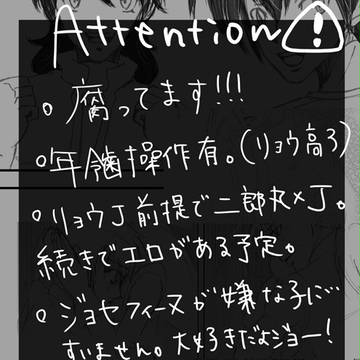 Attention
。腐ってます!!!
。年齢操作有。(リョウ高3)
。リョウJ前提で二郎丸×J。
続きでエロがある予定。
。ジョセフィーヌが嫌な子に…
すいません。大好きだよジョー!